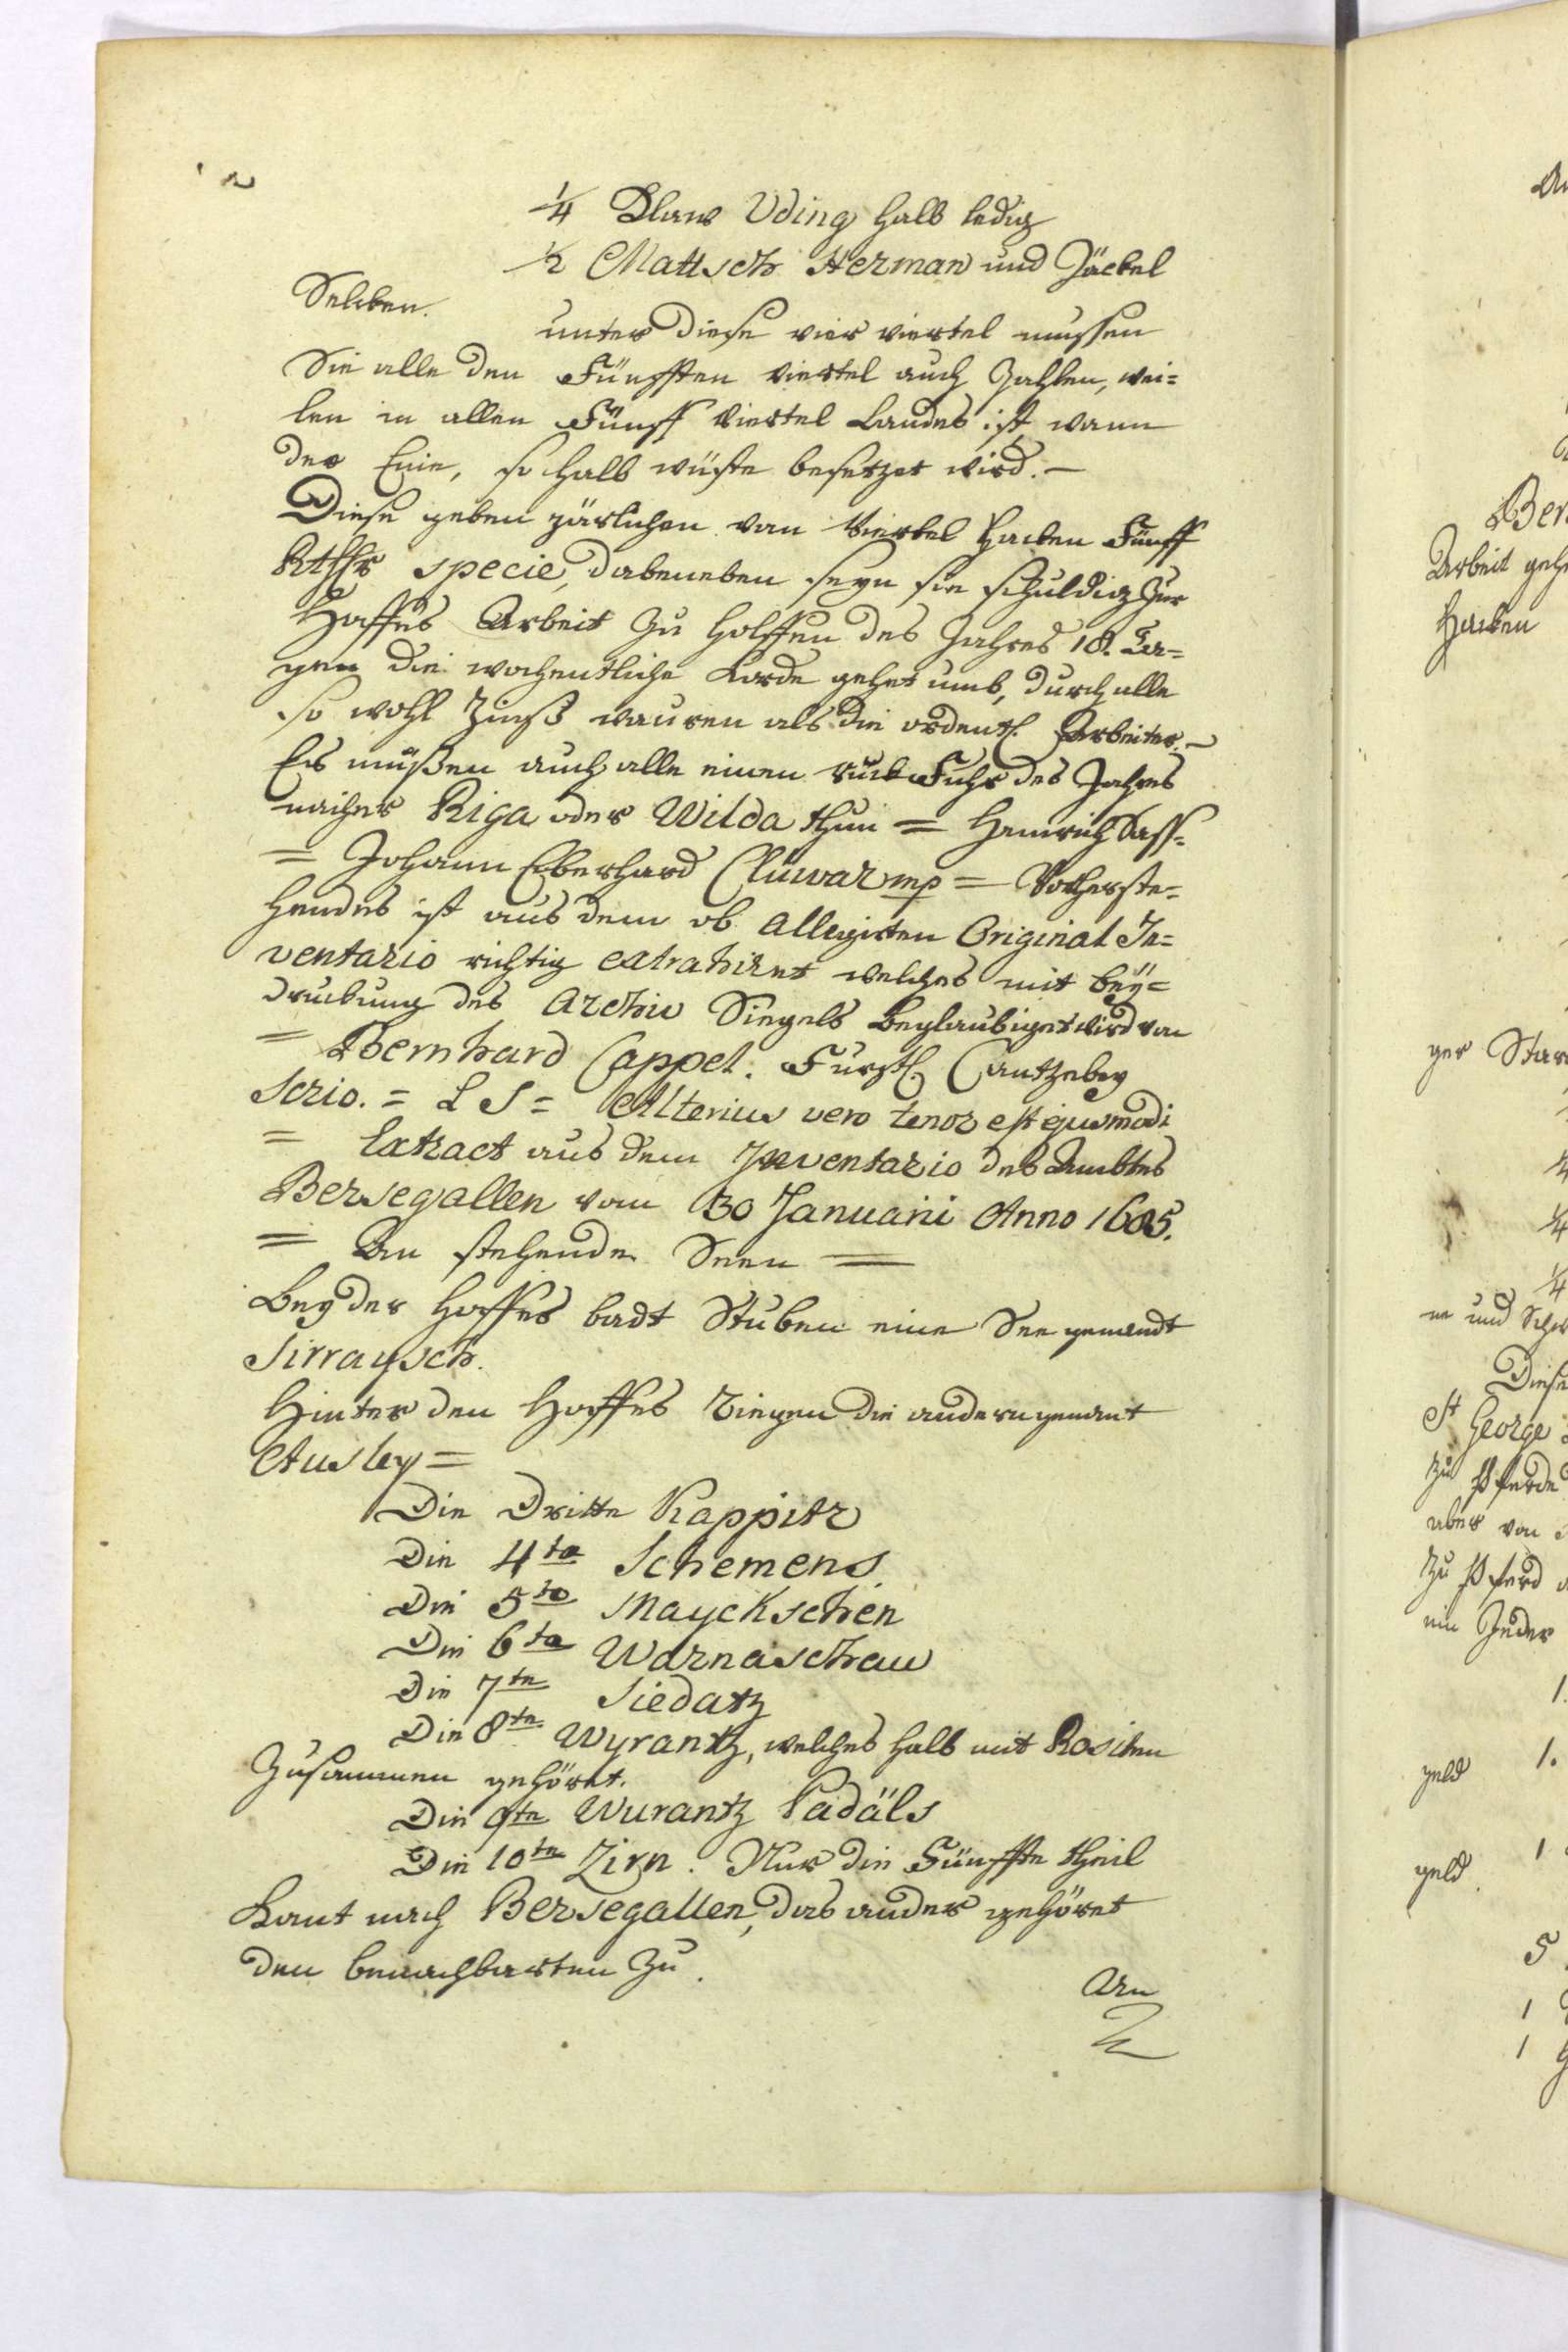 1/4 Blaw Uding halb ledig
1/2 Mattsch Herman und Jäckel
Selcken.
unter diese vier viertel mussen
Sie alle den Fünfften viertel auch Zahlen, wei=
len in allen Fünff Viertel Landes ist, wann
der Eine, so halb wüste besetzet wird. —
Diese geben järlichen von Viertel Hacken Fünff
Rthlr specie, dabeneben seyn sie schuldig zur
Hoffes Arbeit zu holffen des Jahres 18. Ta=
gen die wochentliche Korde gehet umb, durch alle
so wohl Zinß bauren als die ordentl. Arbeiter. —
Es müßen auch alle einen Fuhr des Jahres
nacher Riga oder Wilda thun = Heinrich Sass.
= Johann Eberhard Clüwar mp = Vorherste=
hendes ist aus dem ob allegirten Original In=
ventario richtig extrahiret welches mit bey=
druckung des Archiv Siegels beglaubiget wird von
= Bernhard Cappel. Furstl. Cantzeley
Scrio. = L S = Alterius vero tenor est ejusmodi
= Extract aus dem Inventario des Ambtes
Bersegallen vom 30 Januarii Anno 1685.
= An stehende Seen =
Bey der Hoffes badt Stuben eine See genandt
Sirraysch.
Hinter den Hoffes Riegen die andere genant
Ausley =
Die Dritte Kappitz
Die 4te Schemens
Die 5te Mayckschen
Die 6te Warnaschau
Die 7te Siedatz
Die 8te Wyrantz, welches halb mit Rositen
Zusammen gehöret.
Die 9te Wurantz Padäls
Die 10te Zirn. Nur die Fünffte theil
Kamt nach Bersegallen, das ander gehöret
den benachbarten zu.
An
Ber
Arbeit gehe
Hacken
ger Star
1/4
1/4
1/4
ne und
Diese
St George
zu Pferde
aber von
zu Pferd
ein Jeder
1.
geld 1.
geld 1
5
1
1